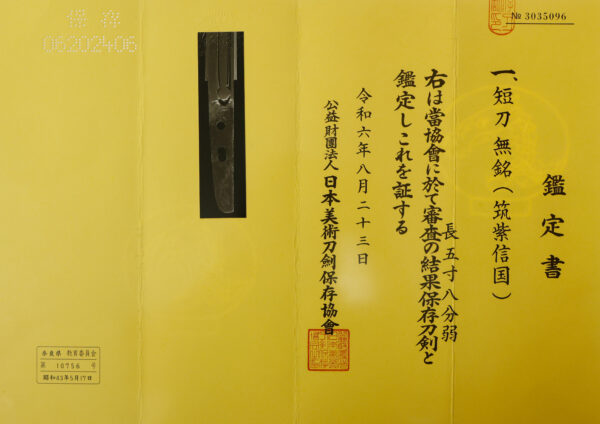 № 3035096
鑑定書
一、短刀 無銘(筑紫信国)
長五寸八分弱
右は當協會に於て審査の結果保存刀剣と
鑑定しこれを証する
令和六年八月二十三日
公益財團法人日本美術刀劍保存協會
保存
06202406
奈良県 教育委員会
第 10756 号
昭和43年5月17日